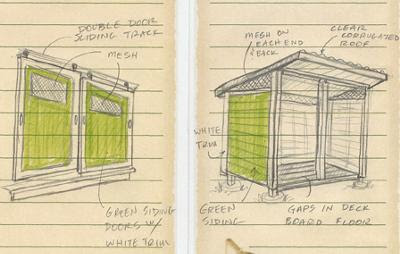 DOUBLE DOOR
SLIDING TRACK
MESH
GREEN SIDING
DOORS W/
WHITE TRIM
MESH ON
EACH END
& BACK
CLEAR
CORRUGATED
ROOF
WHITE
TRIM
GREEN
SIDING
GAPS IN DECK
BOARD FLOOR